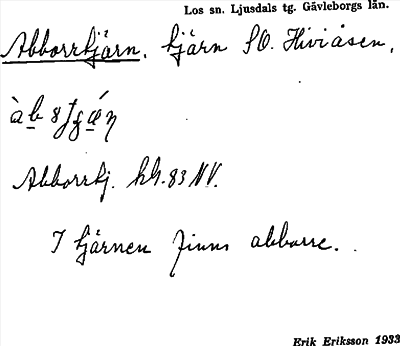 Los sn. Ljusdals tg. Gävleborgs län.
Abborrtjärn. tjärn SO. Hiviåsen,
Abborrtj. hh. 83 NV.
I tjärnen finns abborre.
Erik Eriksson 1933